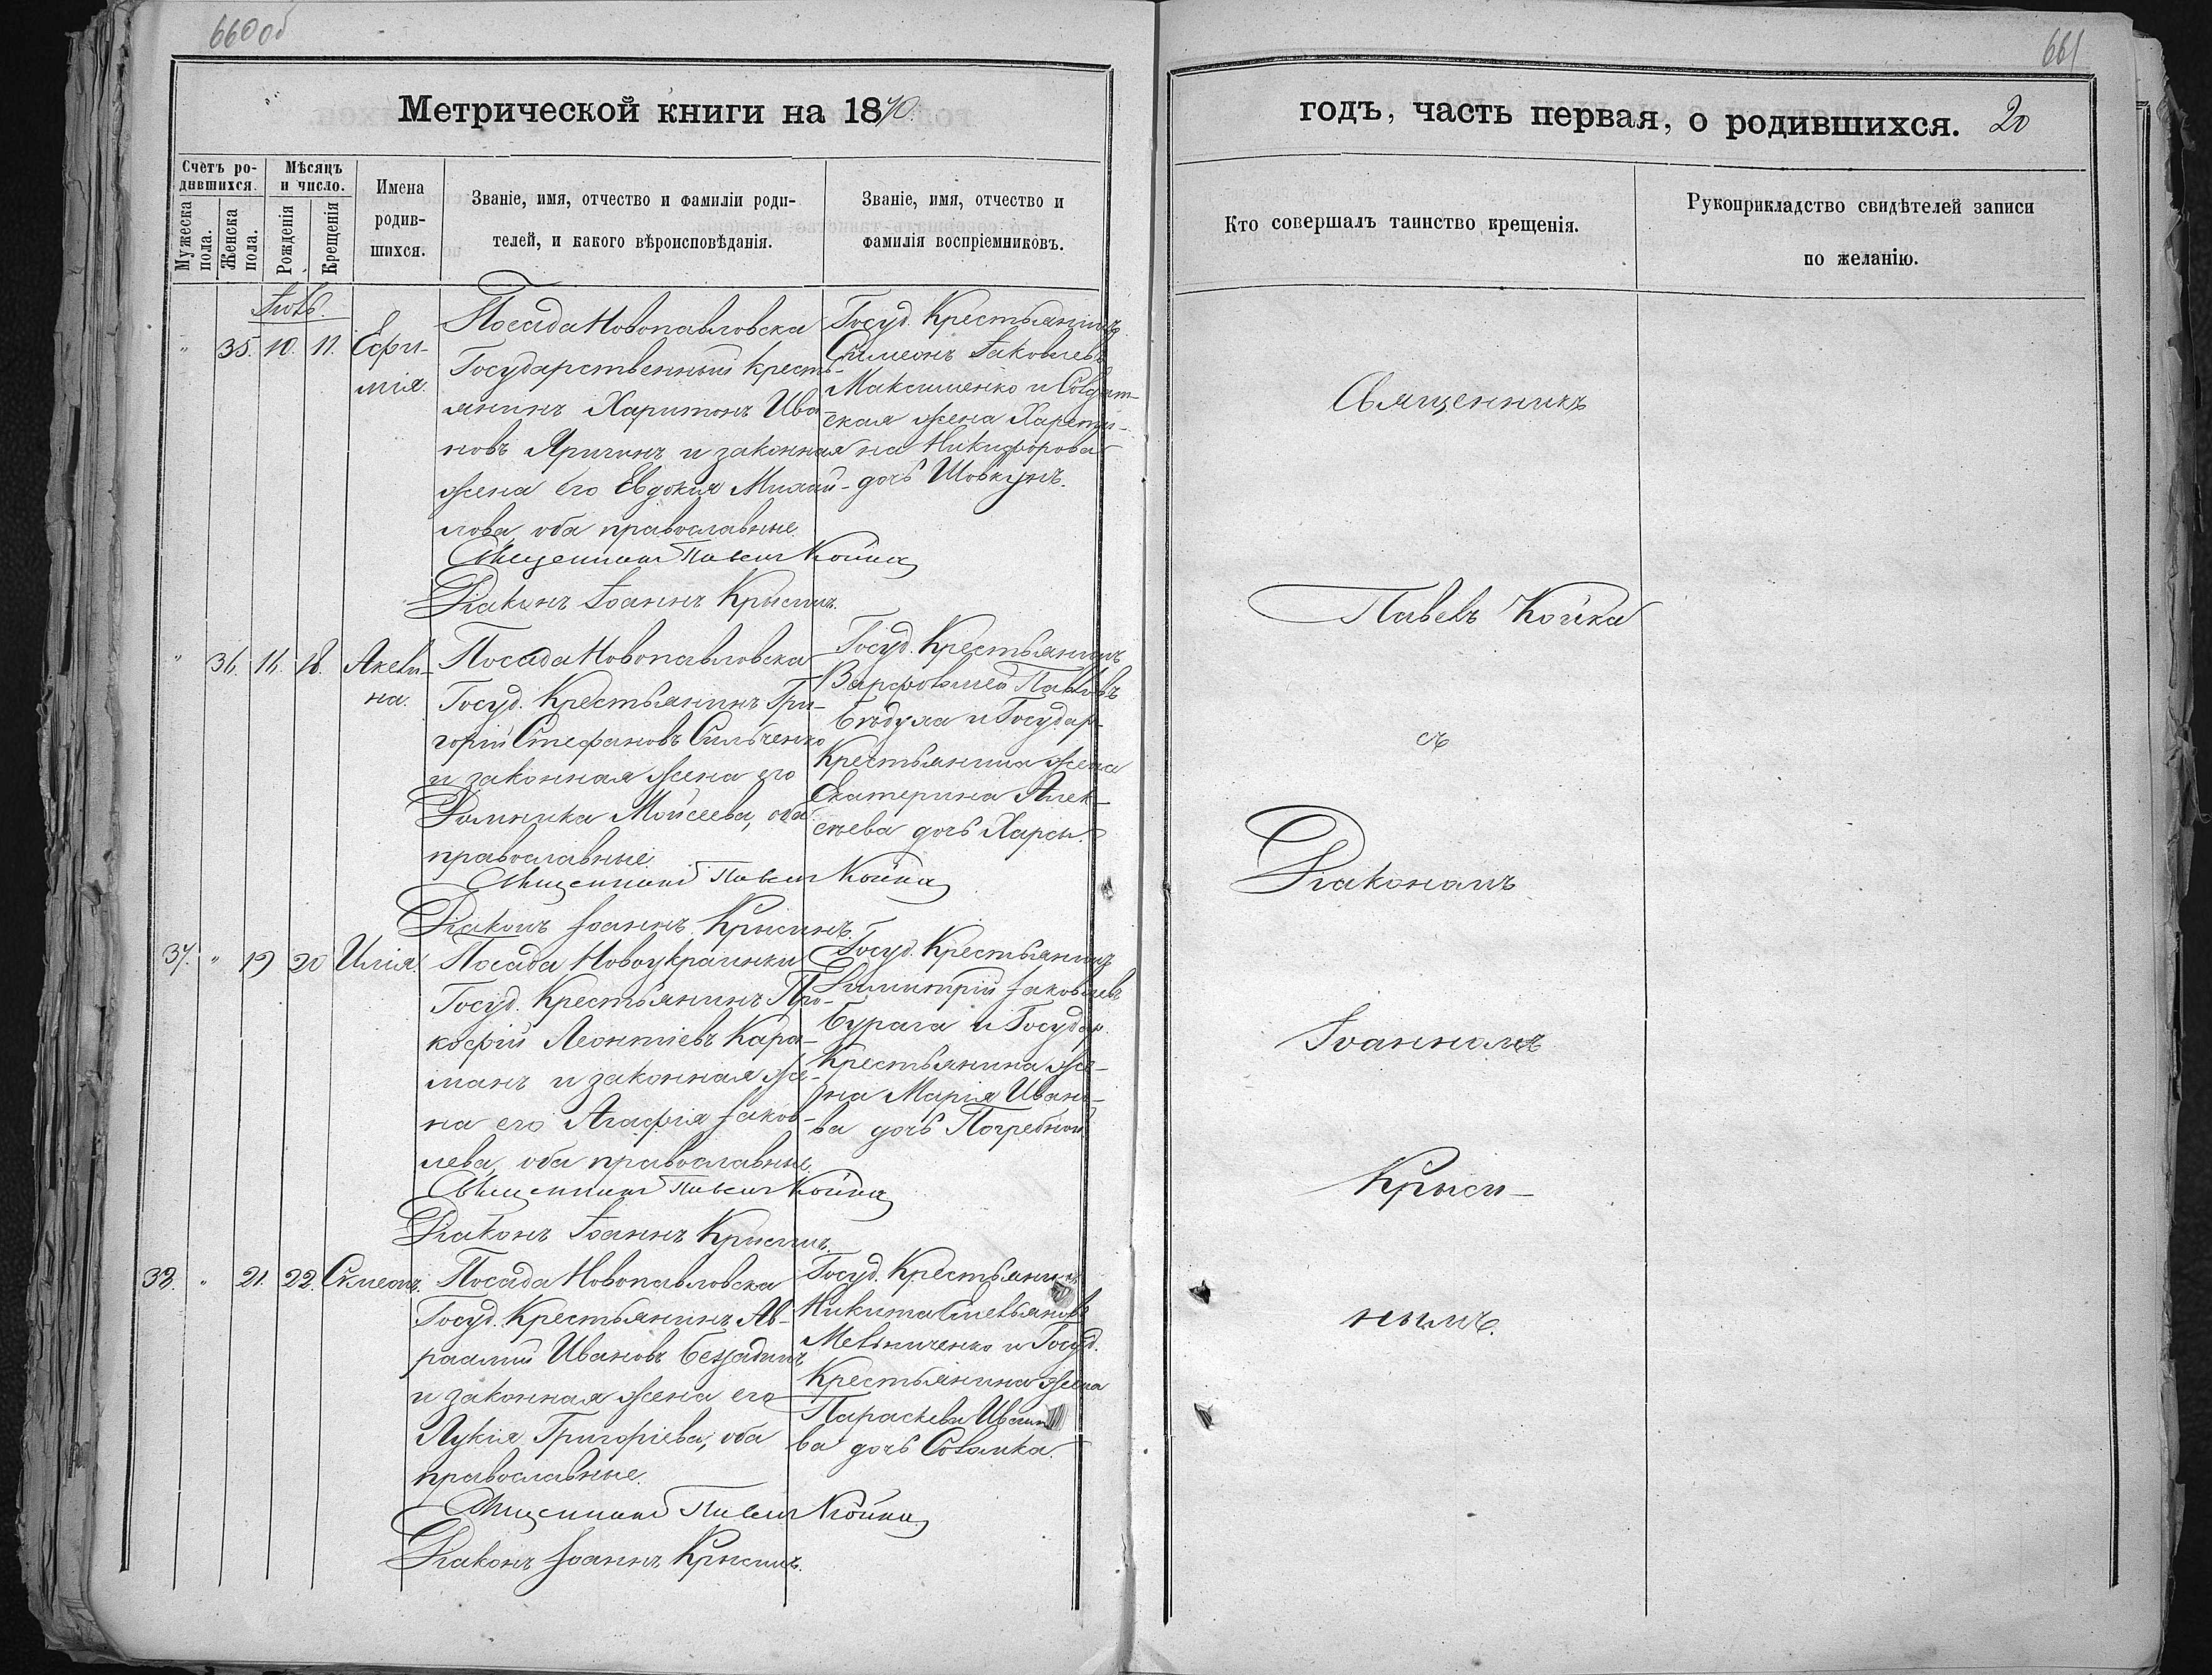 660 об
661
Метрической книги на 1870.
годъ, часть первая, о родившихся. 20
Счетъ ро-
дившихся.
Мужеска
пола.
Женска
пола.
Мѣсяцъ
и число.
Рожденія
Крещенія
Имена
родив-
шихся.
Званіе, имя, отчество и фамиліи роди-
телей, и какого вѣроисповѣданія.
Званіе, имя, отчество и
фамилія воспріемниковъ.
Кто совершалъ таинство крещенія.
Рукоприкладство свидѣтелей записи
по желанію.
" 35. 10. 11.
Еѳфи-
мія.
Посада Новопавловска
Государственный кресть-
янинъ Харитонъ Ива-
новъ Яригинъ и законная
жена его Евдокія Михай-
лова, оба православные.
Священникъ Павелъ Койка
Діаконъ Іоаннъ Крысинъ.
Госуд. Крестьянинъ
Симеонъ Іаковлевъ
Максименко и Солдат-
ская жена Харети-
на Никифорова
дочь Шовкунъ.
" 36. 16. 18.
Акели-
на.
Посада Новопавловска
Госуд. Крестьянинъ Гри-
горій Стефановъ Сильченко
и законная жена его
Домника Мойсеева, оба
православные.
Священникъ Павелъ Койка
Діаконъ Іоаннъ Крысинъ.
Госуд. Крестьянинъ
Варфоломей Павловъ
Бѣдула и Государ.
Крестьянина жена
Екатерина Алек-
сѣева дочь
37. " 19 20
Илія.
Посада Новоукраинки
Госуд. Крестьянинъ Про-
кофій Леонтіевъ Кара-
манъ и законная же-
на его Агафія Іаков-
лева, оба православные.
Священникъ Павелъ Койка
Діаконъ Іоаннъ Крысинъ.
Госуд. Крестьянинъ
Димитрій Іаковлевъ
Бурага и Государ.
Крестьянина же-
на Марія Ивано-
ва дочь Погребной
38. " 21. 22.
Симеонъ.
Посада Новопавловска
Госуд. Крестьянинъ Ав-
раамій Ивановъ
и законная жена его
Лукія Григоріева, оба
православные.
Священникъ Павелъ Койка
Діаконъ Іоаннъ Крысинъ.
Госуд. Крестьянинъ
Никита Емельяновъ
Мельниченко и Госуд.
Крестьянина жена
Параскева Ивано-
ва дочь Соломка.
Священникъ
Павелъ Койка
съ
Діакономъ
Іоанномъ
Крыси-
нымъ.